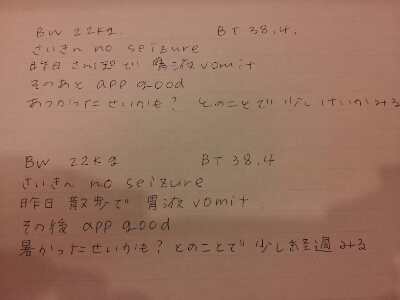 BW 22Kg BT 38.4.
さいきん no seizure
昨日 さん歩で 胃液 vomit
そのあと app good
あつかったせいかも? とのことで 少しけいかみる
BW 22Kg BT 38.4
さいきん no seizure
昨日 散歩で 胃液 vomit.
その後 app good
暑かったせいかも? とのことで 少し経過みる